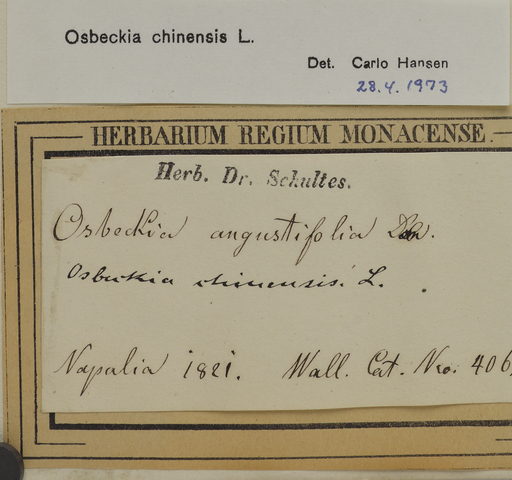 Osbeckia chinensis L.
Det. Carlo Hansen
28.4.1973
HERBARIUM REGIUM MONACENSE.
Herb. Dr. Schultes.
Osbeckia angustifolia
Osbeckia chinensis. L.
Napalia 1821. Wall. Cat. Nro. 406